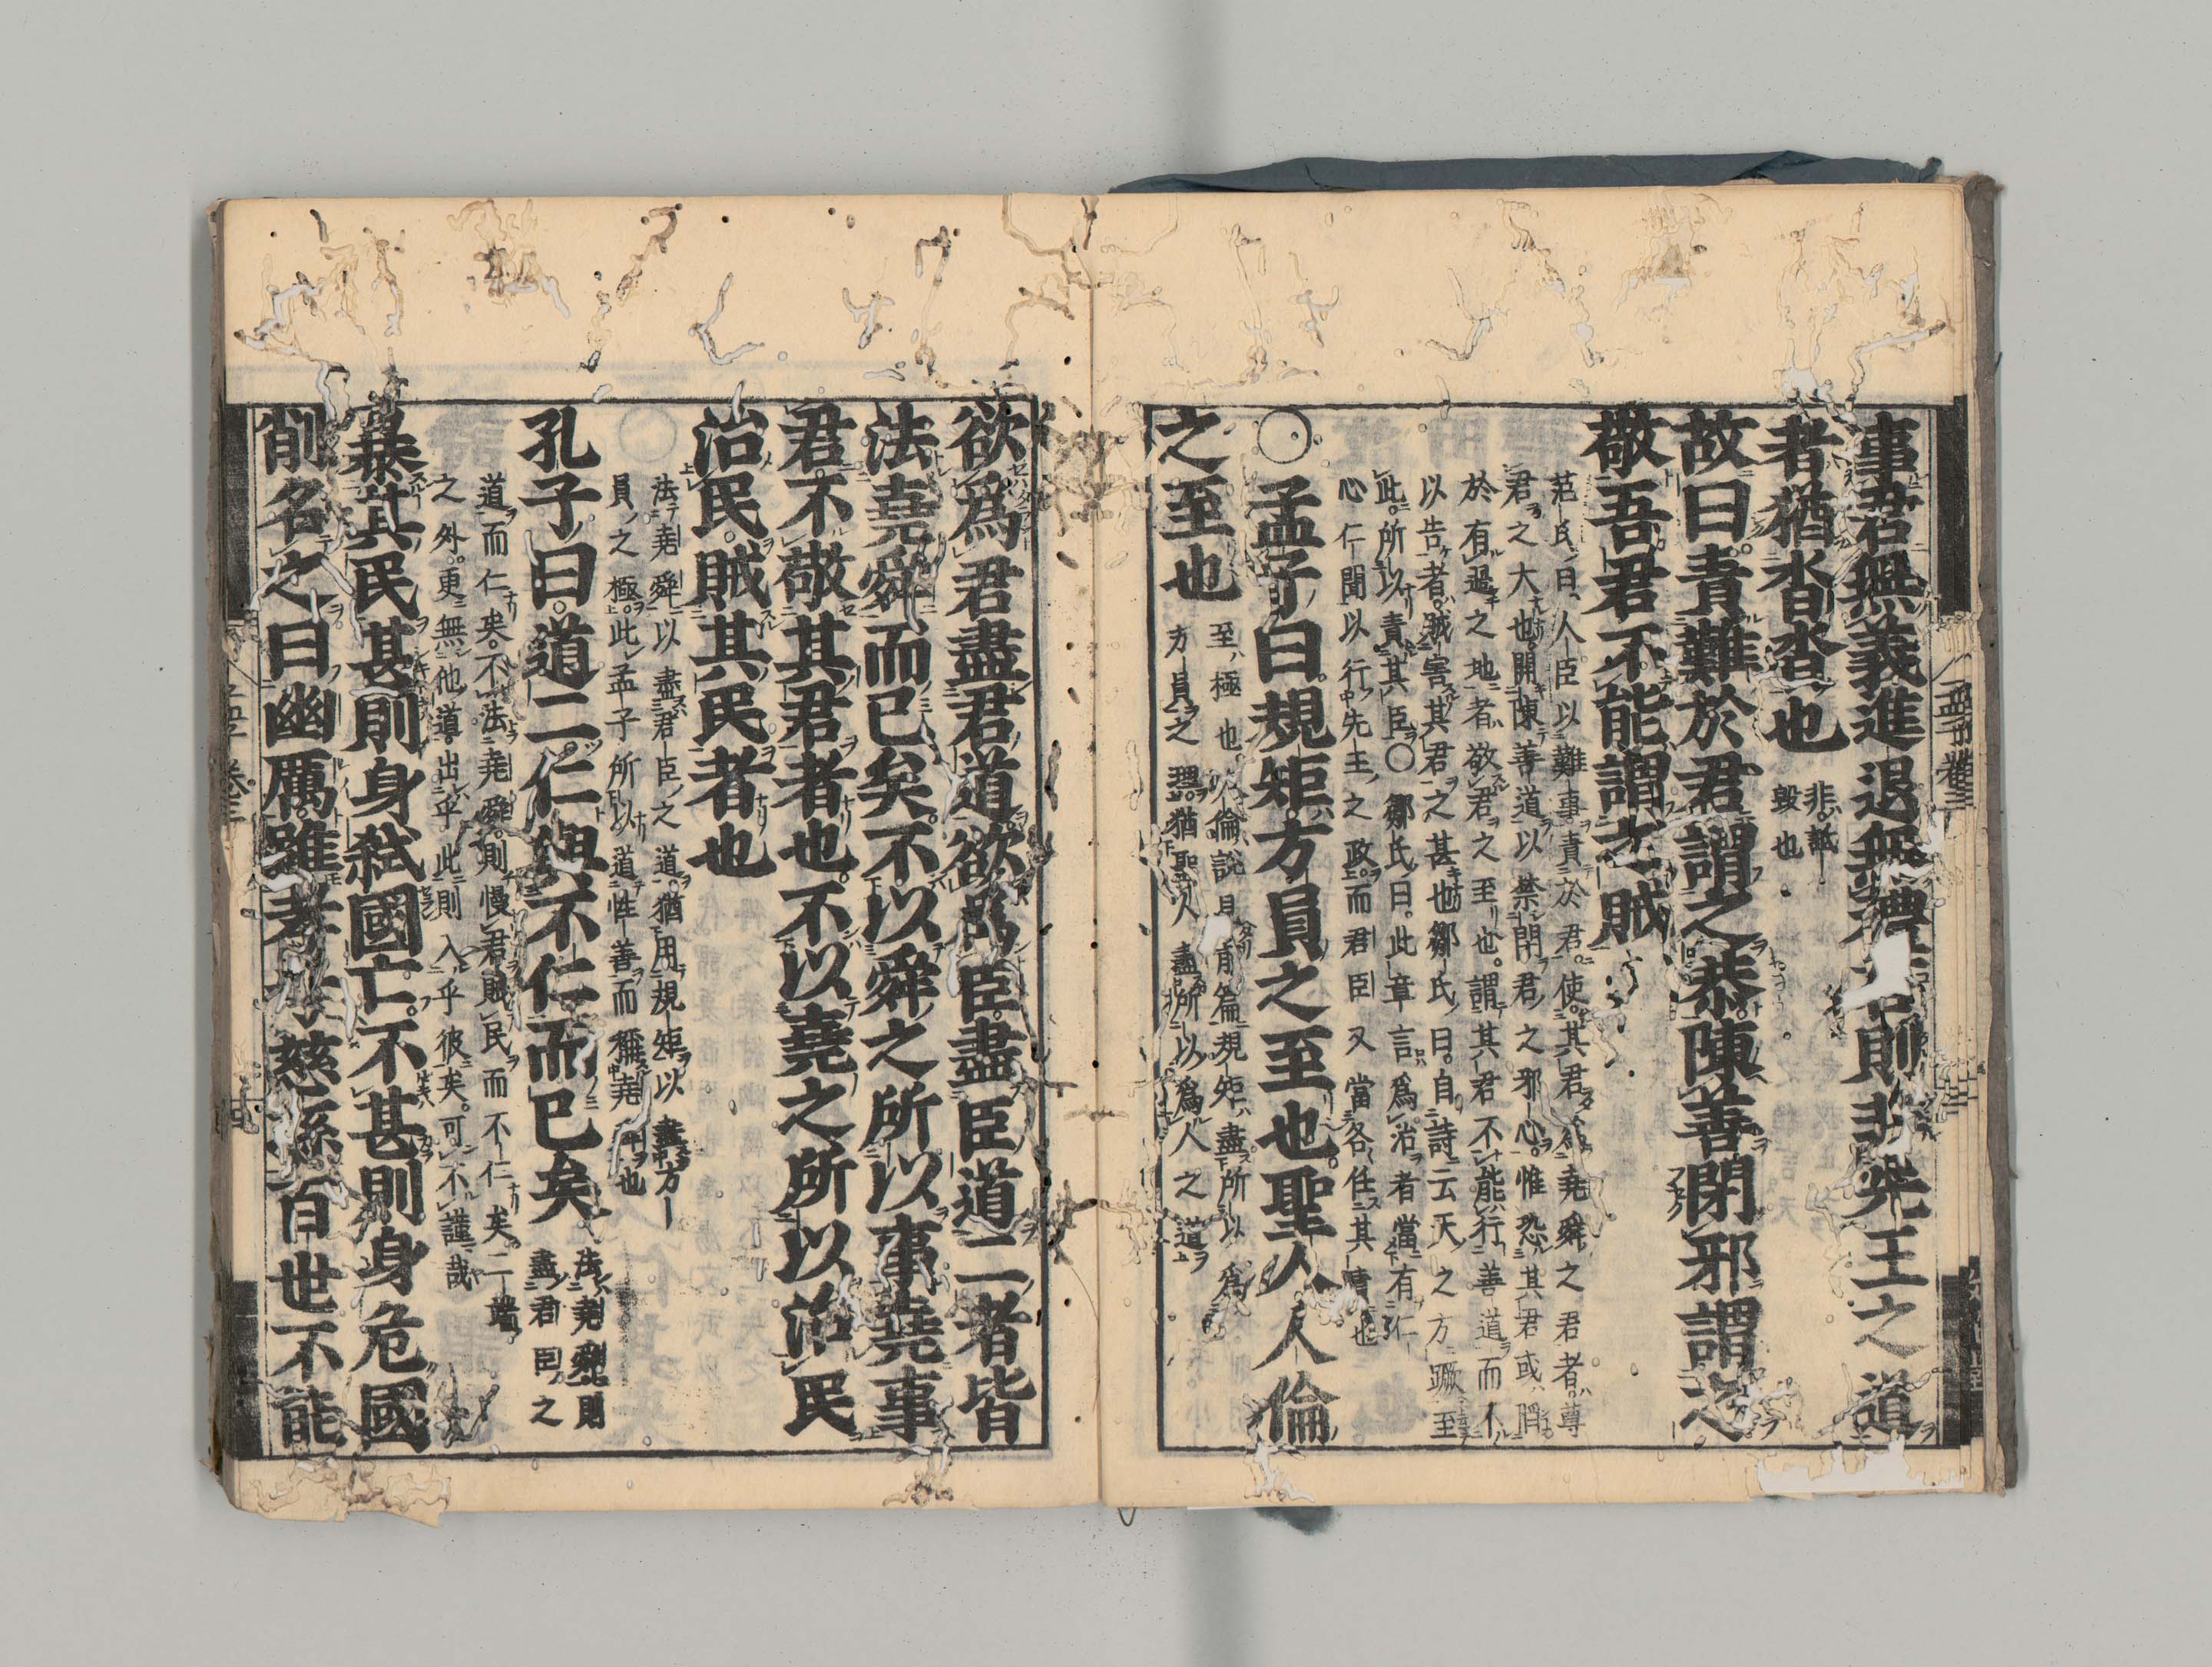 事君無義進退無禮言則非先王之道
者猶沓沓也 非詆
毀也
故曰責難於君謂之恭陳善閉邪謂之
敬吾君不能謂之賊
范氏曰人臣以難事責於君使其君爲堯舜之君者尊
君之大也開陳善道以禁閉君之邪心惟恐其君或陷
於有過之地者敬君之至也謂其君不能行善道而不
以告者賊害其君之甚也鄒氏曰自詩云天之方蹶至
此所以責其臣○鄒氏曰此章言爲治者當有仁
心仁聞以行先王之政而君臣又當各任其責也
○孟子曰規矩方員之至也聖人人倫
之至也
至極也人倫說見前篇規矩盡所以爲
方員之理猶聖人盡所以爲人之道
欲爲君盡君道欲爲臣盡臣道二者皆
法堯舜而已矣不以舜之所以事堯事
君不敬其君者也不以堯之所以治民
治民賊其民者也
法堯舜以盡君臣之道猶用規矩以盡方
員之極此孟子所以道性善而稱堯舜也
孔子曰道二仁與不仁而已矣
法堯舜則
盡君臣之
道而仁矣不法堯舜則慢君賊民而不仁矣二端
之外更無他道出乎此則入乎彼矣可不謹哉
暴其民甚則身弒國亡不甚則身危國
削名之曰幽厲雖孝子慈孫百世不能
孟子卷三